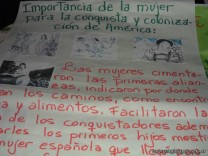 Importancia de la mujer
para la conquista y coloniza-
ción de América:
Las mujeres cimenta-
ron las primeras alian-
as, indicaron por donde
an los caminos, como encontr
a y alimentos. Facilitaron la
de los conquistadores adem
arles los primeros hijos mesti
mujer española que